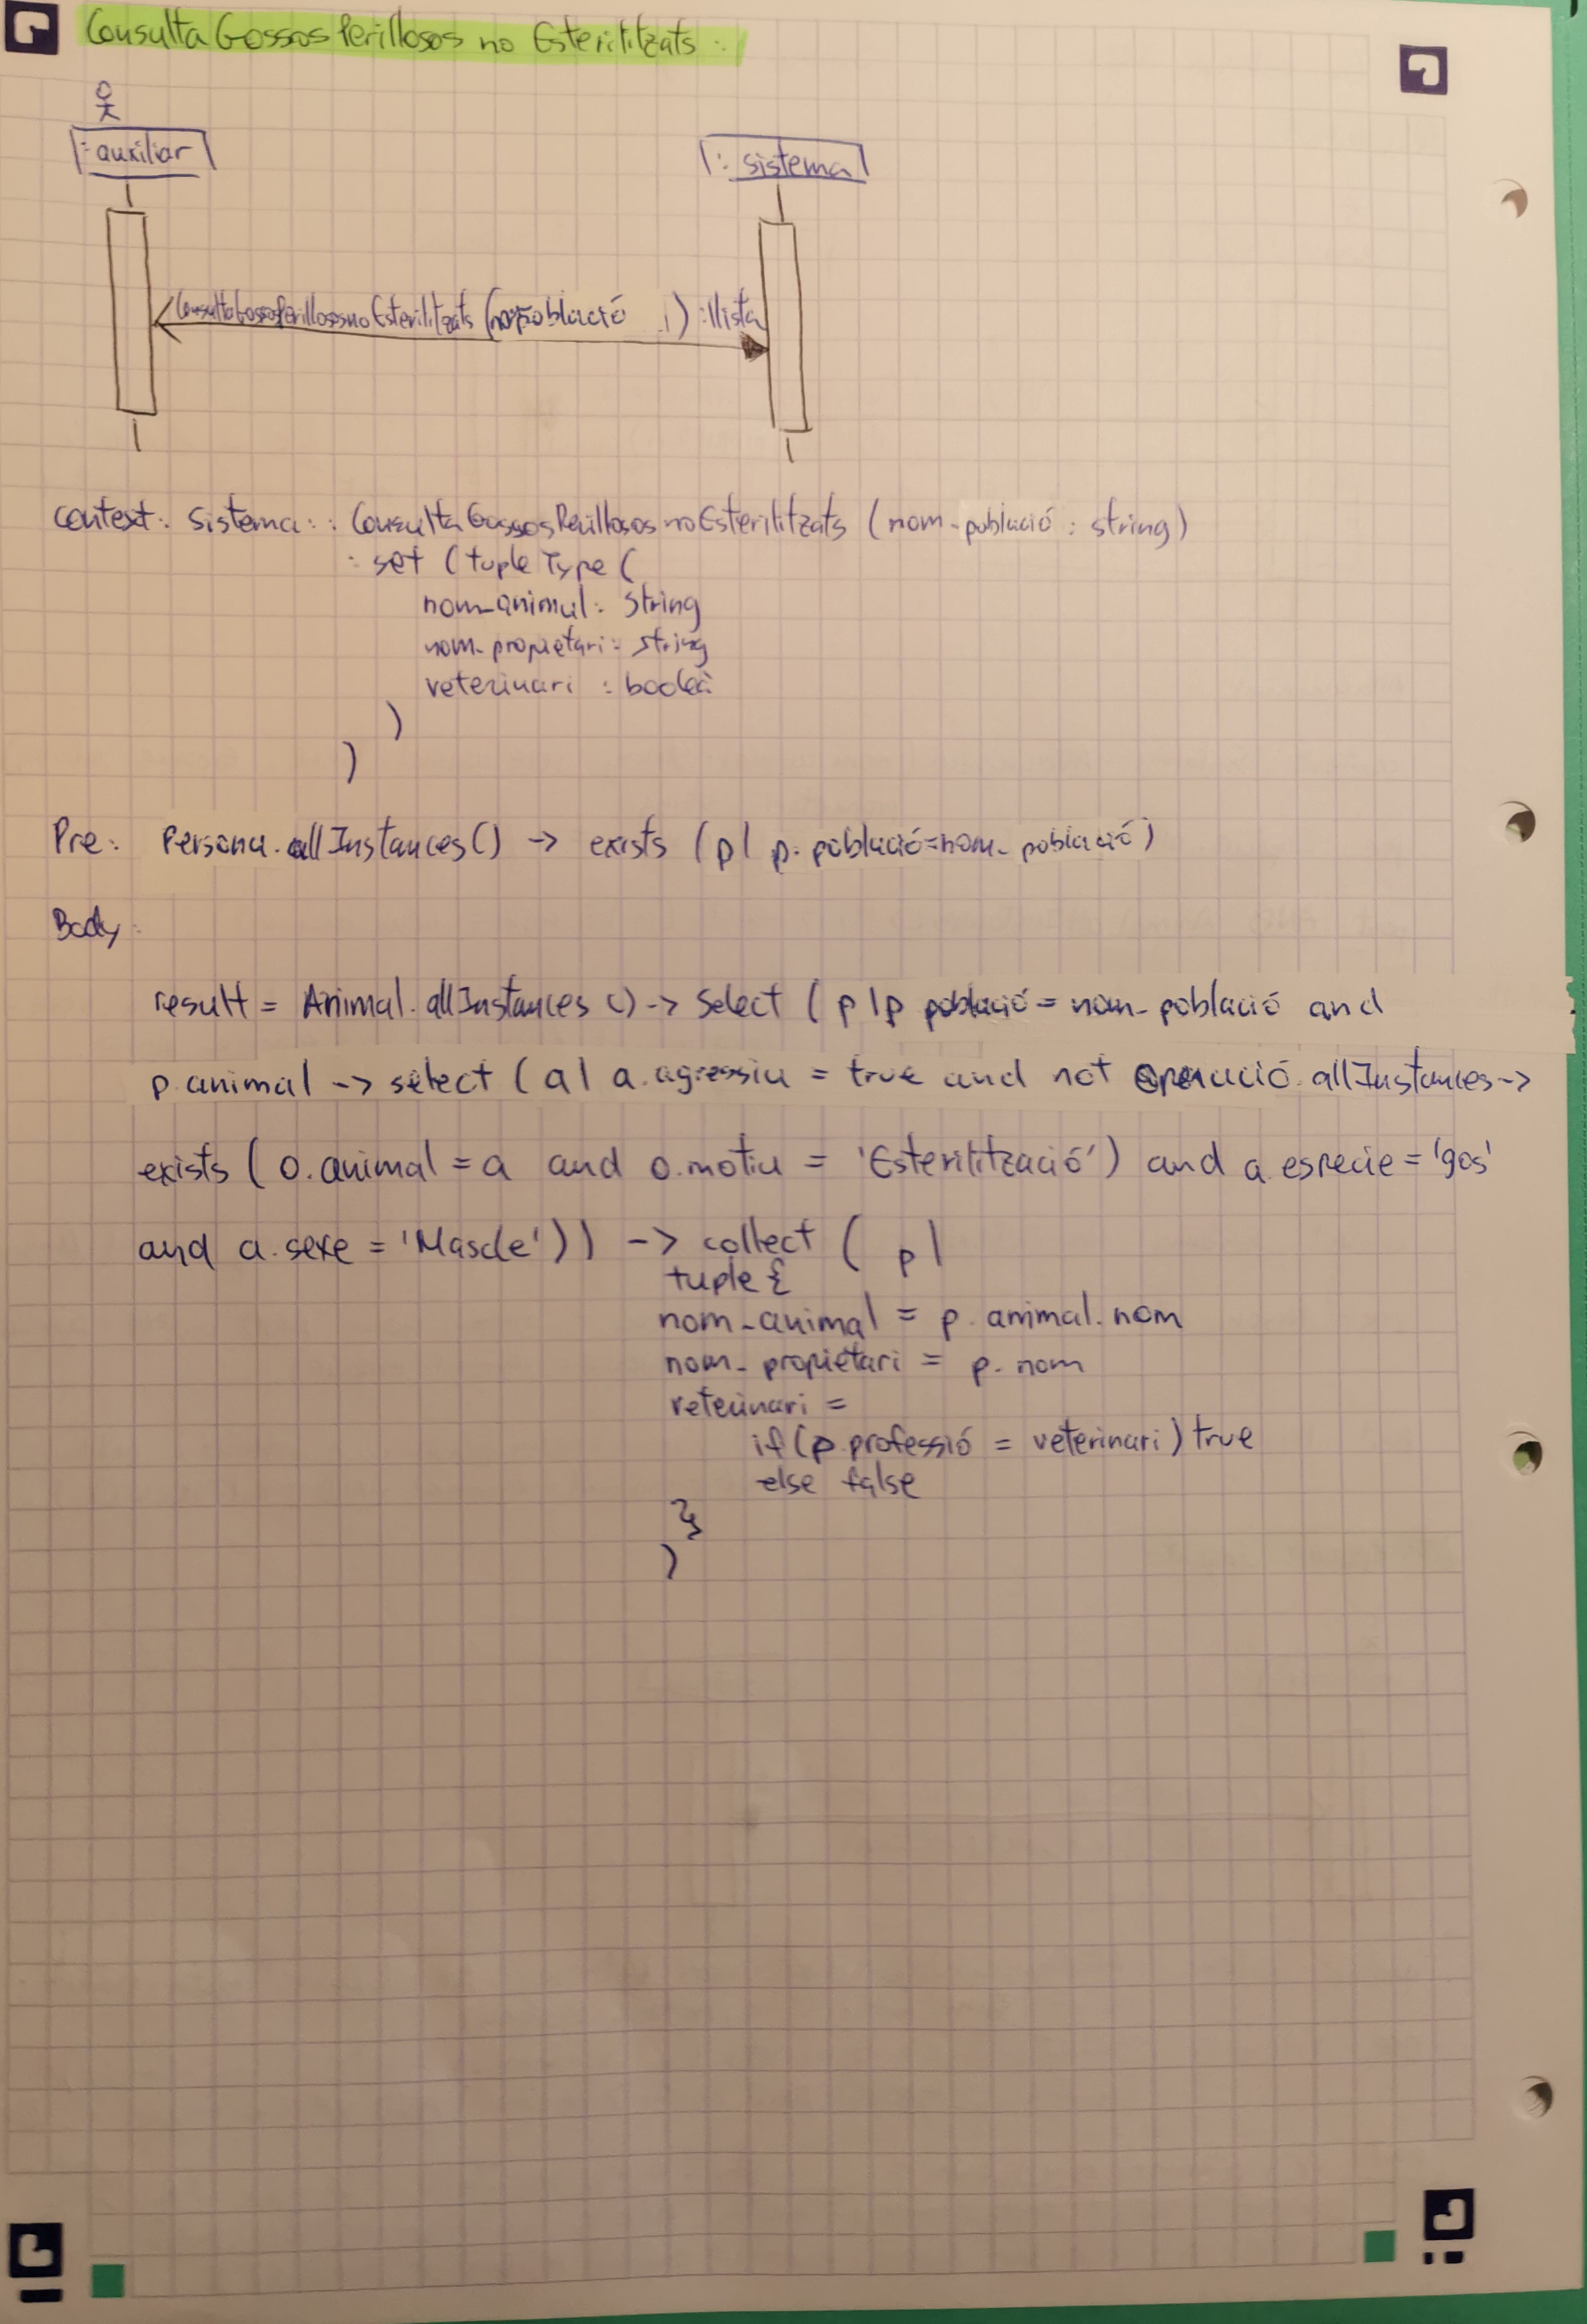 Consulta Gossos Perillosos no Esterilitzats :
: auxiliar
: sistema
ConsultaGossosPerillososnoEsterilitzats (nompoblació ) : llista
context: Sistema:: ConsultaGossosPerillososnoEsterilitzats (nom-població : string)
: set (tuple Type (
nom-animal: String
nom-propietari: string
veterinari : booleà
)
)
Pre: Persona.allInstances() -> exists (p| p.població=nom-població)
Body:
result = Animal.allInstances () -> Select ( p|p població = nom-població and
p.animal -> select (a| a.agressiu = true and not Operació.allInstances ->
exists (o.animal = a and o.motiu = 'Esterilització') and a.especie = 'gos'
and a.sexe = 'Mascle')) -> collect ( p|
tuple {
nom-animal = p.animal.nom
nom-propietari = p.nom
veterinari =
if(p.professió = veterinari) true
else false
}
)